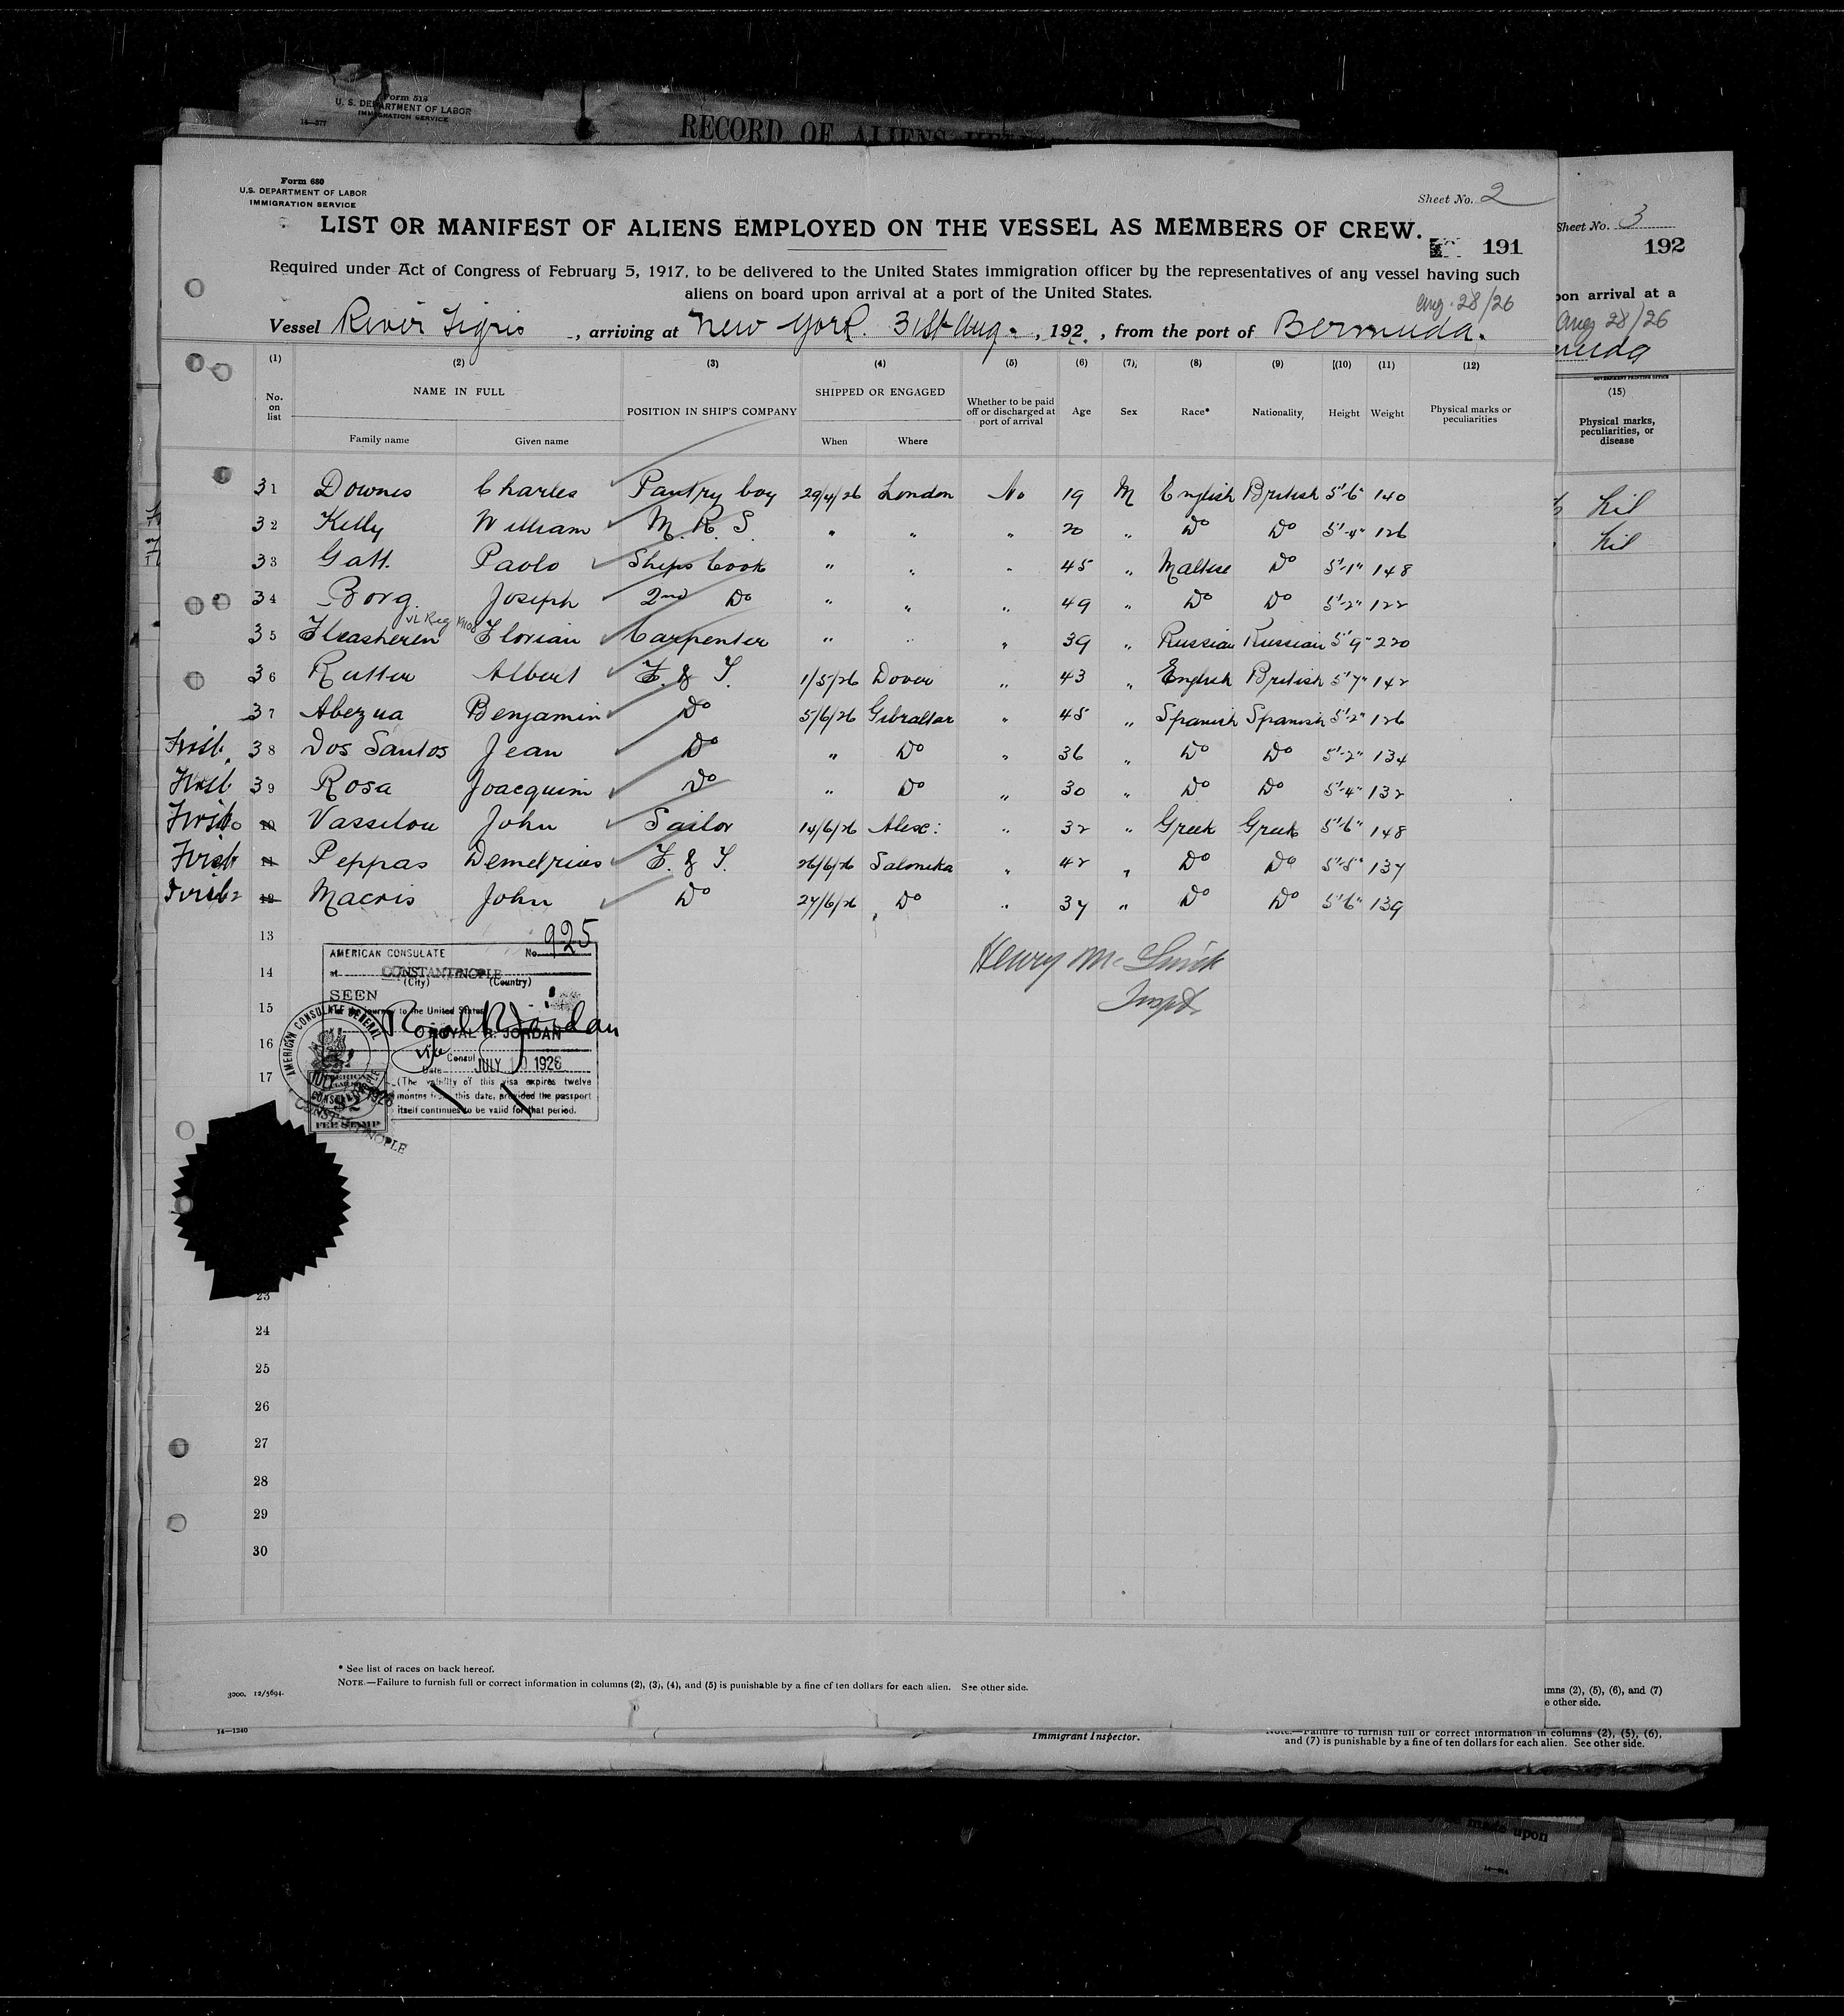 Form 514
U. S. DEPARTMENT OF LABOR
IMMIGRATION SERVICE
14—577
RECORD OF ALIENS
Form 680
U.S. DEPARTMENT OF LABOR
IMMIGRATION SERVICE
Sheet No. 2
LIST OR MANIFEST OF ALIENS EMPLOYED ON THE VESSEL AS MEMBERS OF CREW.
191
Required under Act of Congress of February 5, 1917, to be delivered to the United States immigration officer by the representatives of any vessel having such
aliens on board upon arrival at a port of the United States.
Aug. 28/26
Vessel River Tigris, arriving at New York. 31st Aug., 192 , from the port of Bermuda.
(1) (2) (3) (4) (5) (6) (7) (8) (9) (10) (11) (12)
No. on list
NAME IN FULL
Family name Given name
POSITION IN SHIP'S COMPANY
SHIPPED OR ENGAGED
When Where
Whether to be paid off or discharged at port of arrival
Age Sex Race* Nationality Height Weight
Physical marks or peculiarities
31 Downes Charles Pantry boy 29/4/26 London No 19 M English British 5'-6" 140
32 Kelly William M. R. S. " " " 20 " Do Do 5'-4" 126
33 Gatt. Paolo Ships Cook " " " 45 " Maltese Do 5'-1" 148
34 Borg. Joseph 2nd Do " " " 49 " Do Do 5'-2" 122
35 Florian Carpenter " " " 39 " Russian Russian 5'9" 220
36 Rutter Albert F. & T. 1/5/26 Dover " 43 " English British 5'7" 142
37 Abezua Benjamin Do 5/6/26 Gibraltar " 45 " Spanish Spanish 5'-2" 126
First 38 Dos Santos Jean Do " Do " 36 " Do Do 5'-2" 134
First 39 Rosa Joacquim Do " Do " 30 " Do Do 5'-4" 132
First 10 Vassilou John Sailor 14/6/26 Alex: " 32 " Greek Greek 5'-6" 148
First 11 Peppas Demetrios F. & T. 26/6/26 Salonika " 42 " Do Do 5'-8" 137
First 12 Macris John Do 27/6/26 Do " 37 " Do Do 5'6" 139
13
14
15
16
17
23
24
25
26
27
28
29
30
AMERICAN CONSULATE No. 925
at CONSTANTINOPLE
(City) (Country)
SEEN
journey to the United States
Royal R Jordan
ROYAL R. JORDAN
Vice Consul
Date JULY 10 1926
(The validity of this visa expires twelve
months from this date, provided the passport
itself continues to be valid for that period.
AMERICAN CONSULATE GENERAL
CONSTANTINOPLE
JULY 1926
FEE STAMP
Inspt.
* See list of races on back hereof.
NOTE.—Failure to furnish full or correct information in columns (2), (3), (4), and (5) is punishable by a fine of ten dollars for each alien. See other side.
3000. 12/5694.
14—1240
Sheet No. 3
192
pon arrival at a
Aug 28/26
muda
GOVERNMENT PRINTING OFFICE
(15)
Physical marks,
peculiarities, or
disease
Nil
Nil
umns (2), (5), (6), and (7)
e other side.
Immigrant Inspector.
NOTE.—Failure to furnish full or correct information in columns (2), (5), (6),
and (7) is punishable by a fine of ten dollars for each alien. See other side.
made upon